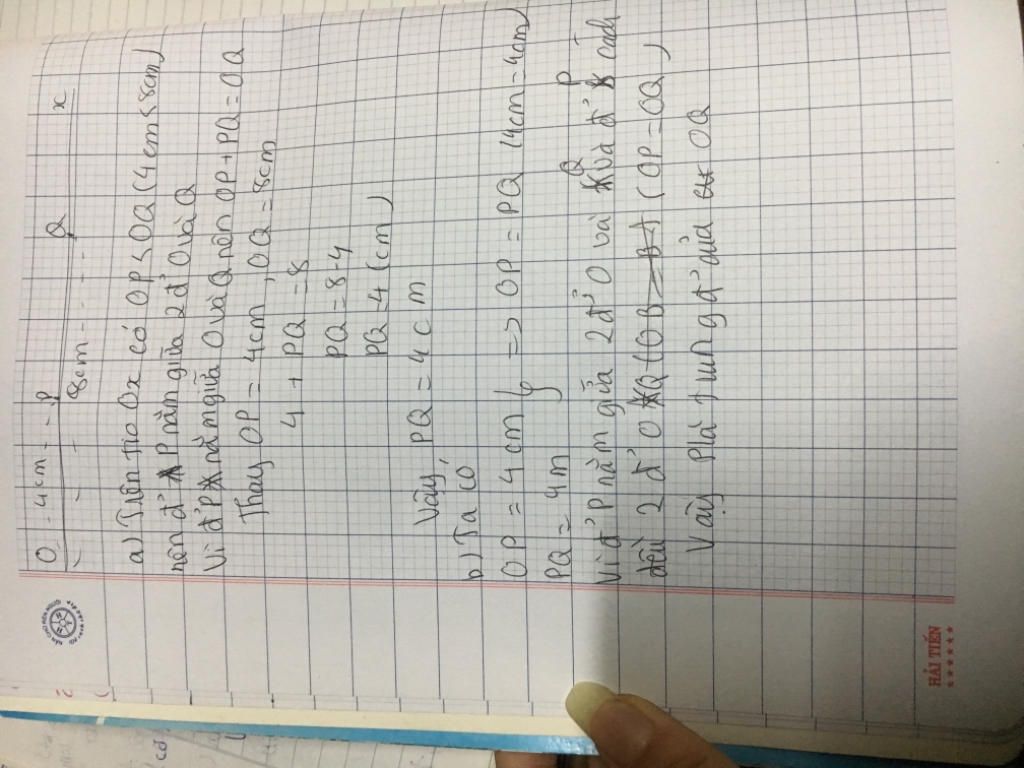 O 4cm P Q x
8cm
a) Trên tia Ox có OP < OQ (4cm < 8cm)
nên đ' P nằm giữa 2 đ' O và Q
Vì đ' P nằm giữa O và Q nên OP + PQ = OQ
Thay OP = 4cm, OQ = 8cm
4 + PQ = 8
PQ = 8 - 4
PQ = 4 (cm)
Vậy PQ = 4cm
b) Ta có
OP = 4cm } => OP = PQ (4cm = 4cm)
PQ = 4m
Vì đ' P nằm giữa 2 đ' O và Q và đ' P cách
đều 2 đ' O Q (OB = B) (OP = OQ)
Vậy P là trung đ' của OQ
HẢI TIẾN